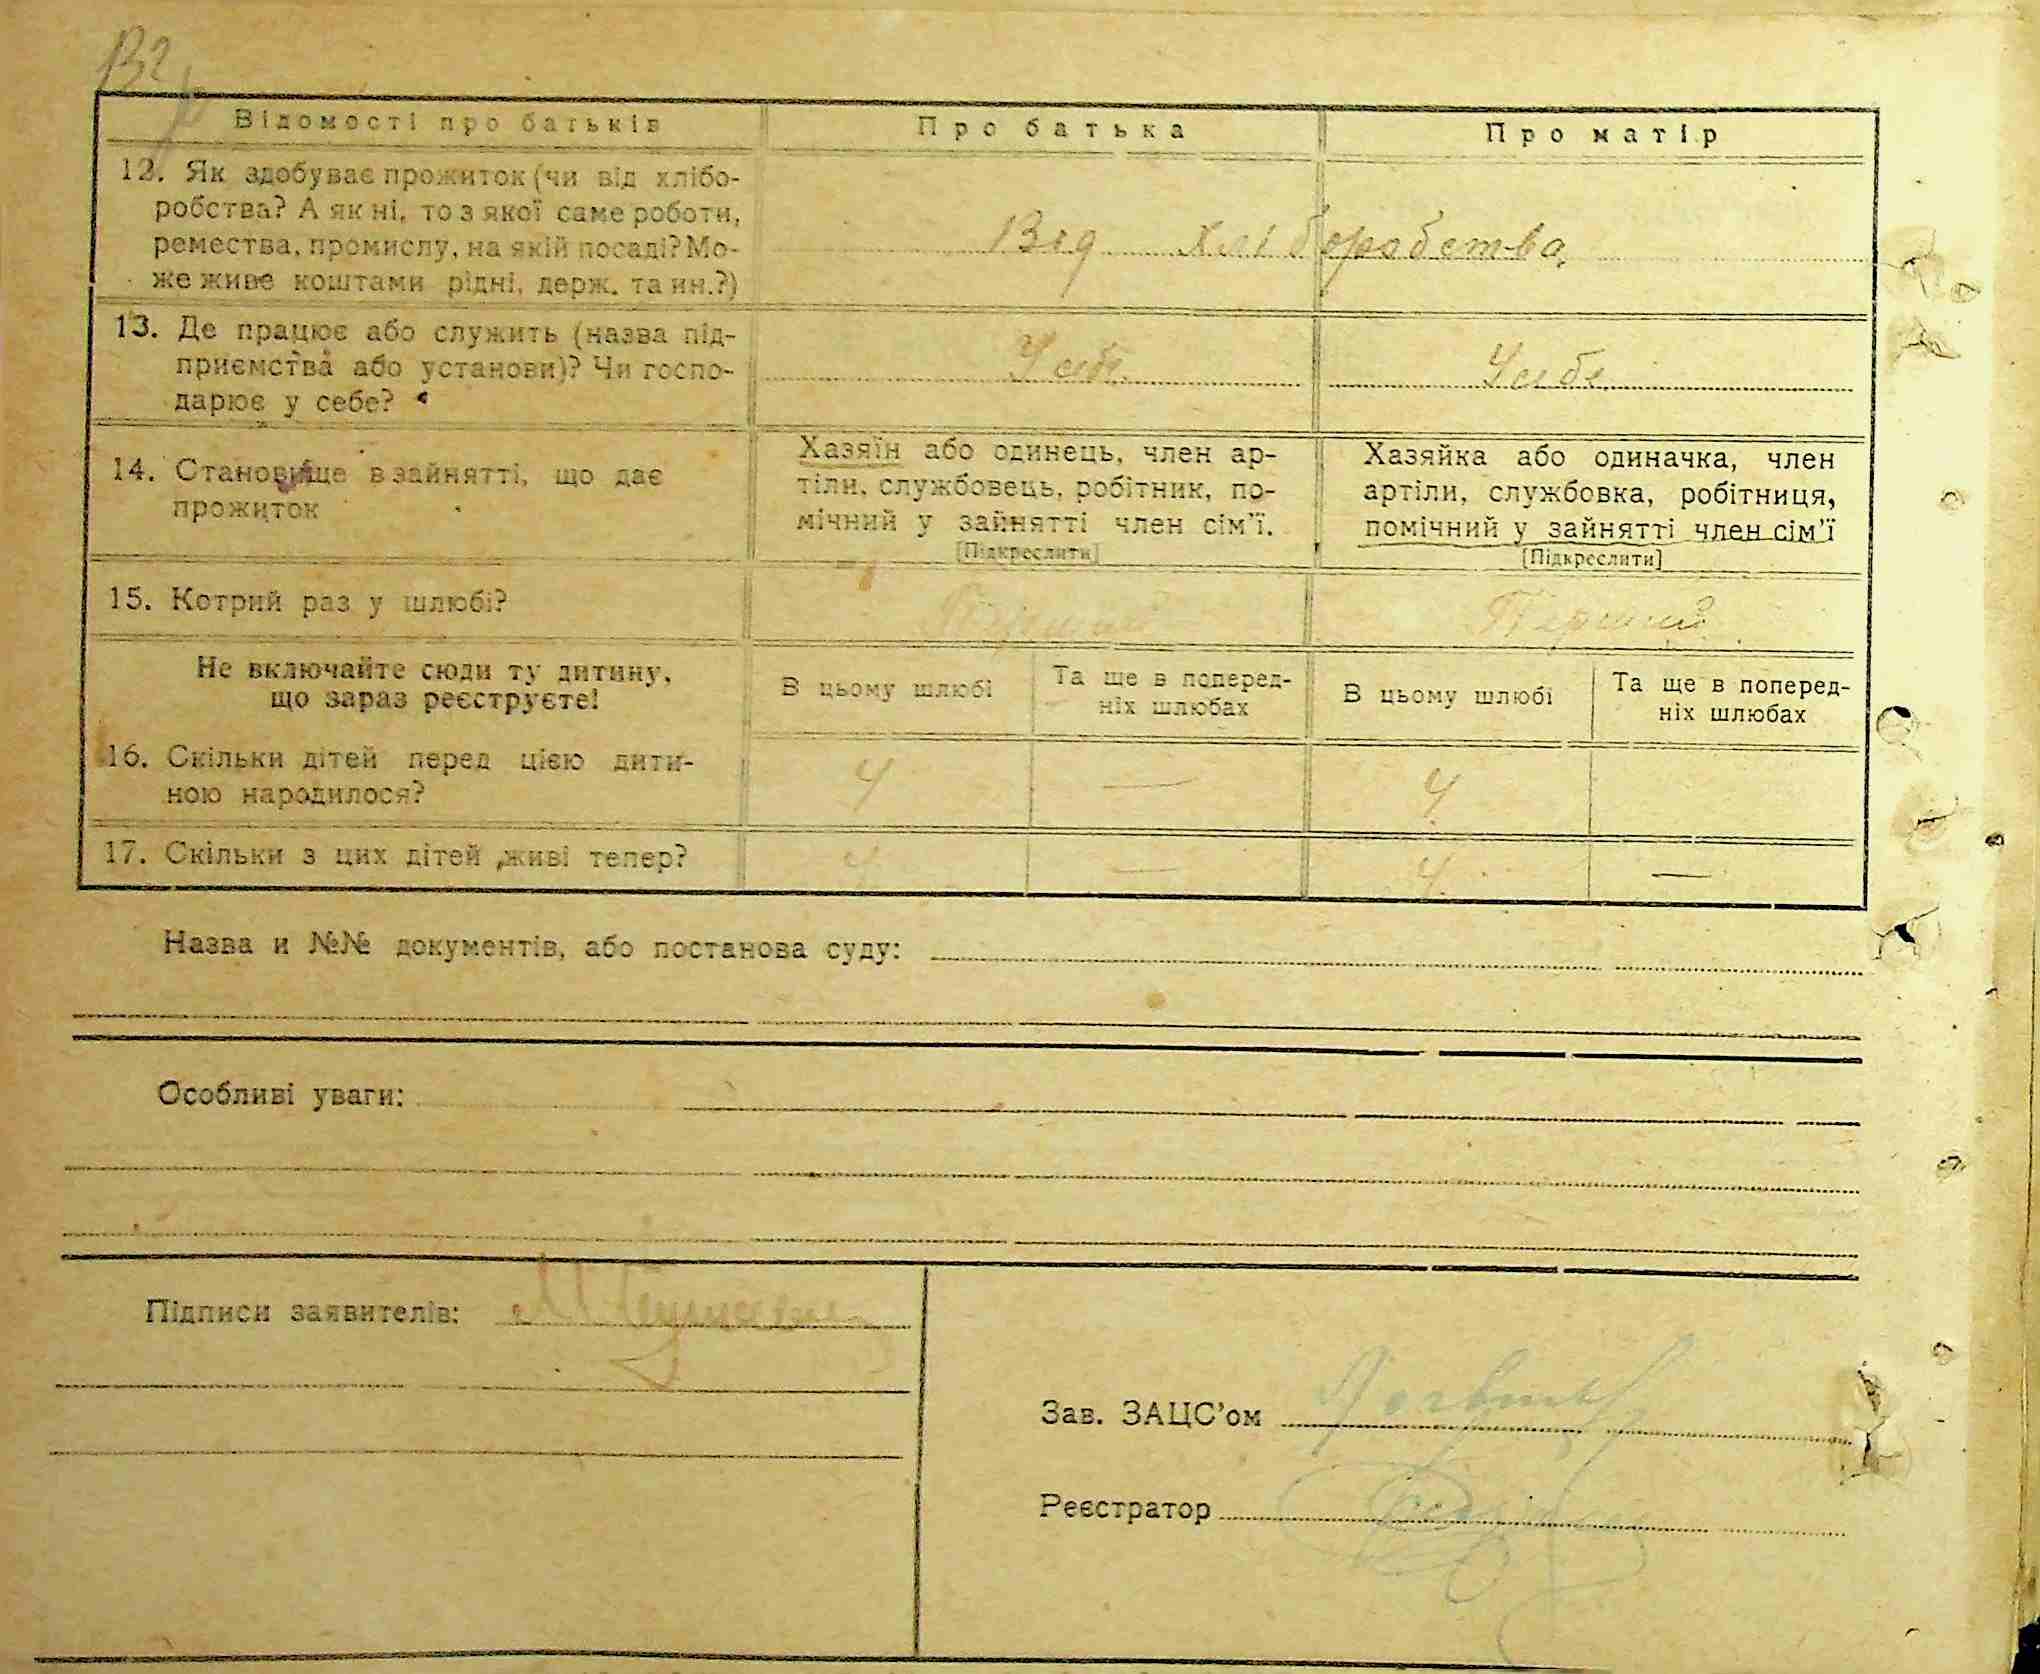 132
Відомості про батьків
Про батька
Про матір
12. Як здобуває прожиток (чи від хлібо-
робства? А як ні, то з якої саме роботи,
ремества, промислу, на якій посаді? Мо-
же живе коштами рідні, держ. та ин.?)
Від хліборобства
13. Де працює або служить (назва під-
приємства або установи)? Чи госпо-
дарює у себе?
У себе
У себе
14. Становище в зайнятті, що дає
прожиток
Хазяїн або одинець, член ар-
тіли, службовець, робітник, по-
мічний у зайнятті член сім'ї.
[Підкреслити]
Хазяйка або одиначка, член
артіли, службовка, робітниця,
помічний у зайнятті член сім'ї
[Підкреслити]
15. Котрий раз у шлюбі?
Перший
Перший
Не включайте сюди ту дитину,
що зараз реєструєте!
В цьому шлюбі
Та ще в поперед-
ніх шлюбах
В цьому шлюбі
Та ще в поперед-
ніх шлюбах
16. Скільки дітей перед цією дити-
ною народилося?
4 — 4
17. Скільки з цих дітей живі тепер?
4 — 4 —
Назва и №№ документів, або постанова суду:
Особливі уваги:
Підписи заявителів:
Зав. ЗАЦС'ом
Реєстратор